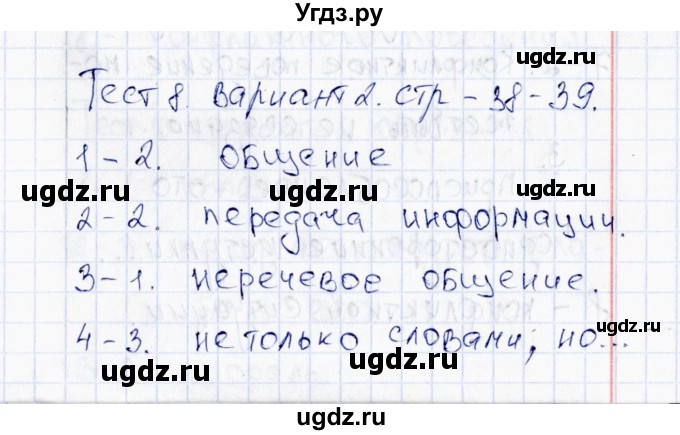 Угдз.ру
ugdz.ru
Тест 8. вариант 2. стр - 38 - 39.
ugdz.ru
1 - 2. общение
ugdz.ru ugdz.ru
2 - 2. передача информации.
ugdz.ru
3 - 1. неречевое общение.
ugdz.ru
ugdz.ru
4 - 3. не только словами, но...
ugdz.ru
ugdz.ru